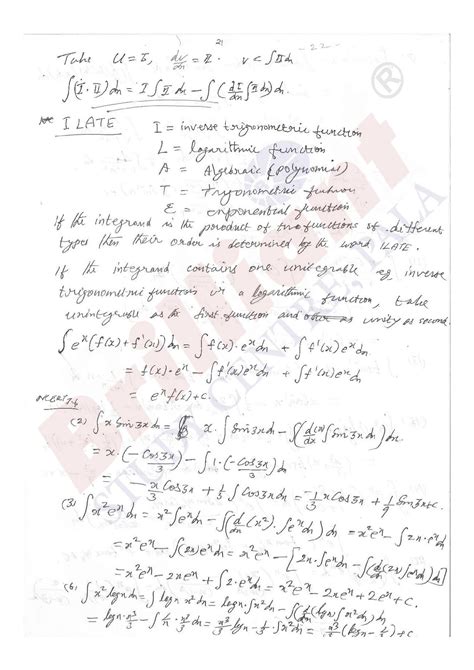 21
- 22 -
Take U = I, dv/dn = II. v = ∫II dn
∫(I·II)dn = I∫II dn − ∫(dI/dn ∫II dn)dn.
ILATE I = inverse trigonometric function
L = logarithmic function
A = Algebraic (polynomial)
T = Trigonometric function
E = exponential function
If the integrand is the product of two functions of different
types then their order is determined by the word ILATE.
If the integrand contains one unintegrable eg inverse
trigonometric function or a logarithmic function, take
unintegrable as the first function and other as unity as second.
∫eˣ(f(x)+f'(x))dn = ∫f(x)·eⁿdn + ∫f'(x)eⁿdn
= f(x)·eⁿ − ∫f'(x)eⁿdn + ∫f'(x)eⁿdn
= eⁿf(x)+c.
(2) ∫x Sin3x dn = x·∫Sin3x dn − ∫(d(x)/dx ∫Sin3x dn)dn.
= x·(−Cos3x/3) − ∫1·(−Cos3x/3)dn
= −x/3 Cos3x + 1/3∫Cos3x dn = −1/3 x Cos3x + 1/9 Sin3x+c.
(3) ∫x²eⁿdn = x²∫eⁿdn − ∫(d/dn(x²)·∫eⁿdn)dn = x²eⁿ − ∫2n·eⁿdn
= x²eⁿ − ∫(2n)eⁿdn = x²eⁿ − [2n·∫eⁿdn − ∫(d/dn(2n)∫eⁿdn)dn]
= x²eⁿ − 2neⁿ + ∫2·eⁿdn = x²eⁿ − 2neⁿ + 2eⁿ + c.
(6) ∫x²logn dn = ∫logn x²dn = logn·∫x²dn − ∫(d/dn(logn)∫x²dn)dn
= logn·n³/3 − ∫1/n·x³/3 dn = n³/3 logn − 1/3∫x²dn = n³/3(logn − 1/3)+c
Brilliant
STUDY CENTRE, PALA
®